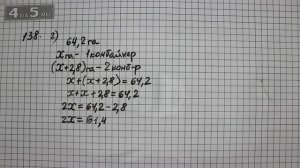 4 5
138. 2)
64,2 га
x га - 1 комбайнер
(x+2,8) га - 2 комб-р
x+(x+2,8)=64,2
x+x+2,8=64,2
2x=64,2-2,8
2x=61,4